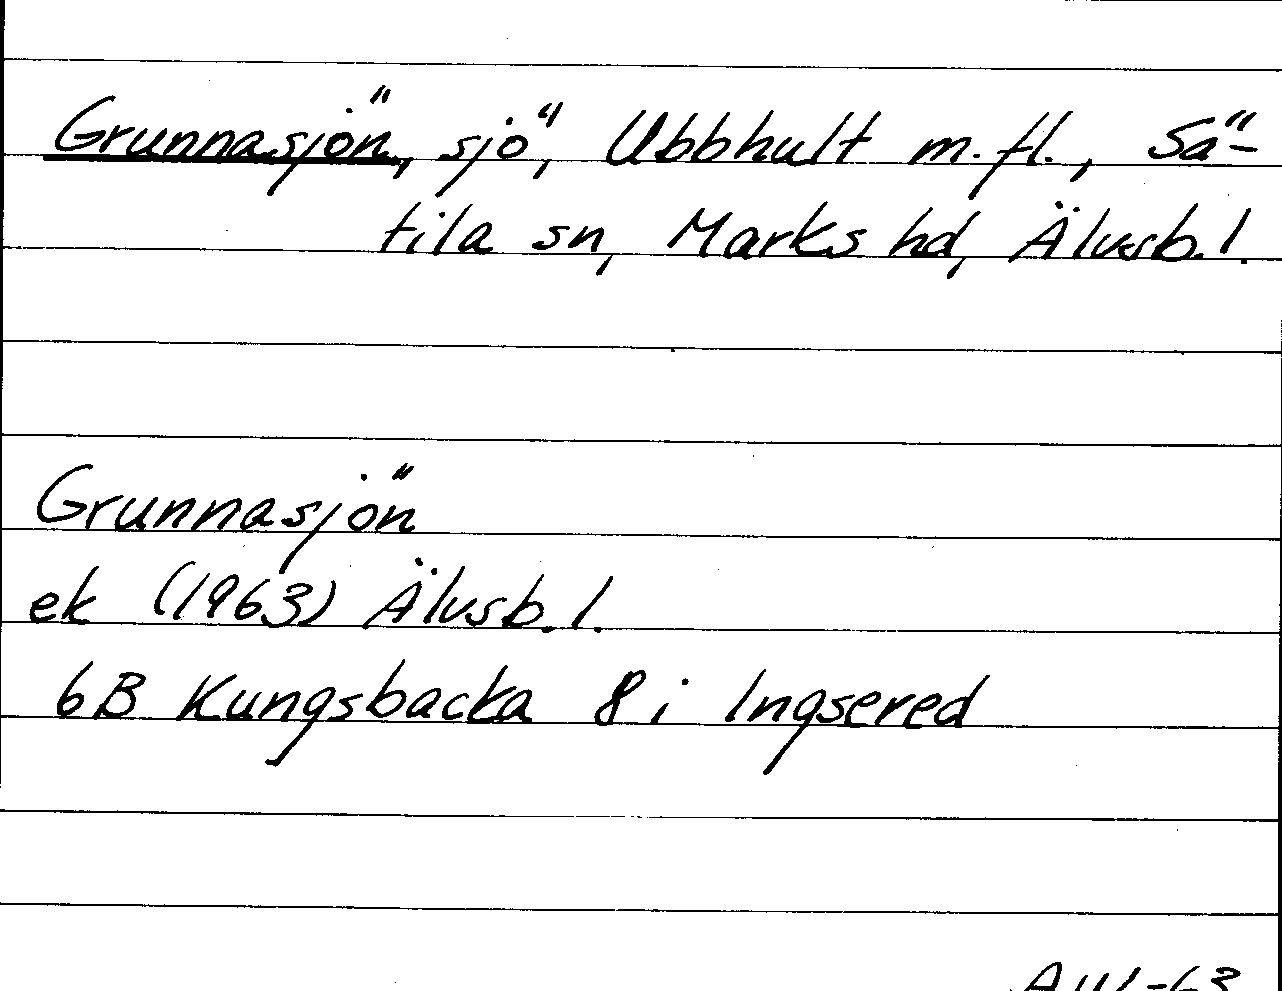 Grunnasjön, sjö, Ubbhult m.fl., Sä-
tila sn, Marks hd, Älvsb.l.
Grunnasjön
ek (1963) Älvsb.l.
6B Kungsbacka 8i Ingsered